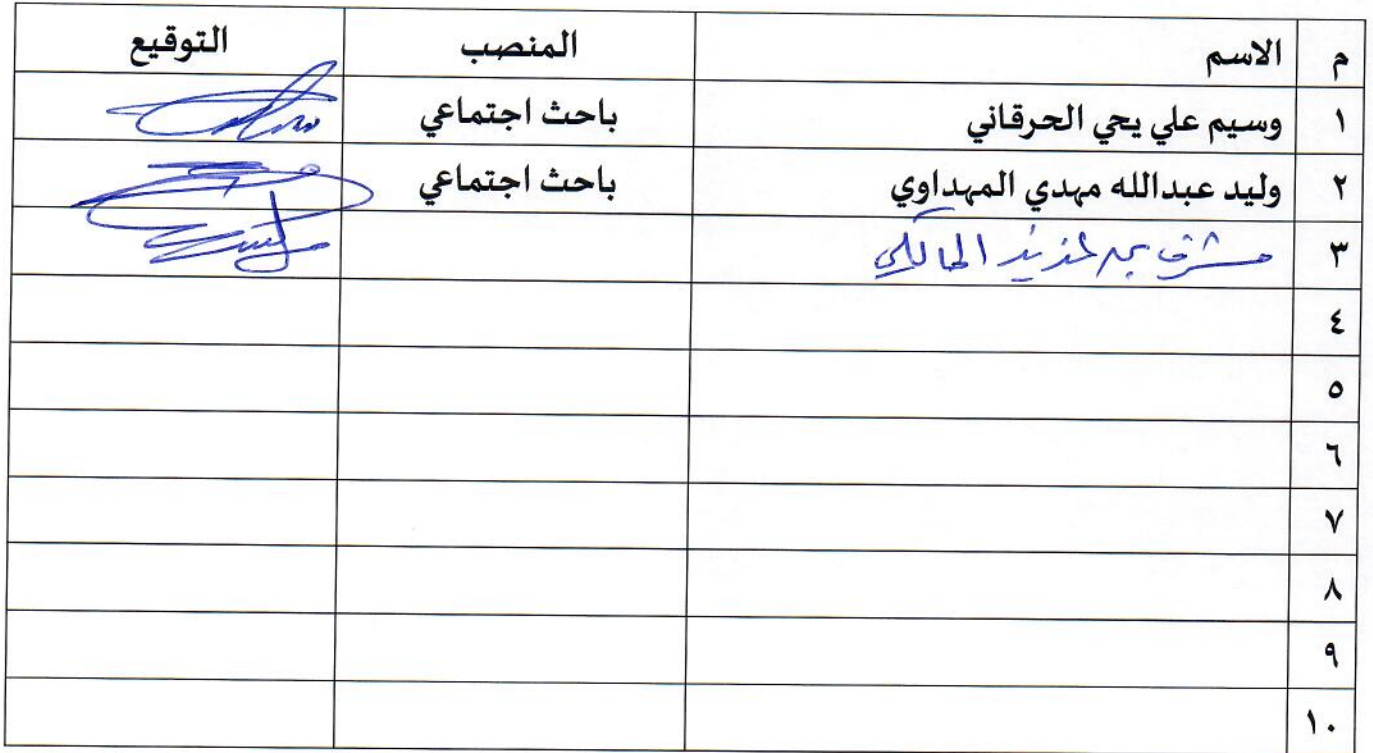 م الاسم المنصب التوقيع
١ وسيم علي يحي الحرقاني باحث اجتماعي
٢ وليد عبدالله مهدي المهداوي باحث اجتماعي
٣ مشرف بن المالكي
٤
٥
٦
٧
٨
٩
١٠